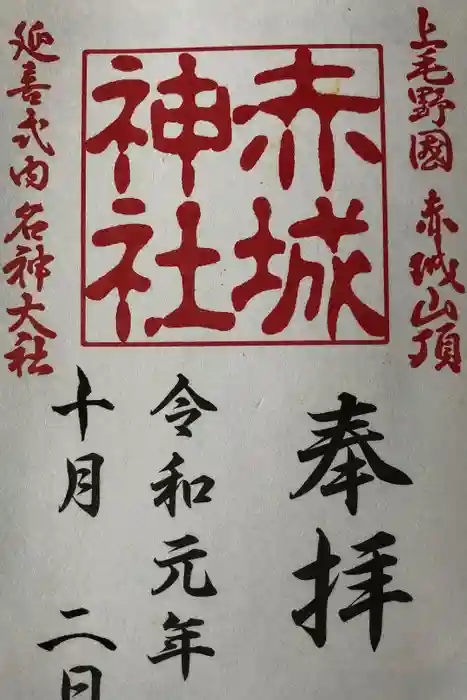 上毛野國 赤城山頂
赤城
神社
延喜式内名神大社
奉拝
令和元年
十月 二日